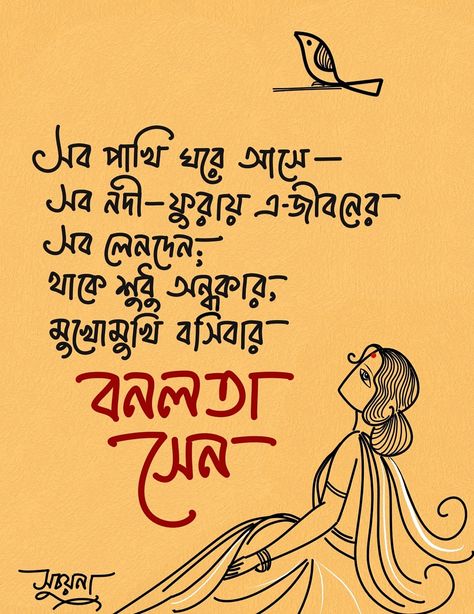 সব পাখি ঘরে আসে—
সব নদী—ফুরায় এ-জীবনের
সব লেনদেন;
থাকে শুধু অন্ধকার,
মুখোমুখি বসিবার
বনলতা
সেন
সুচয়না